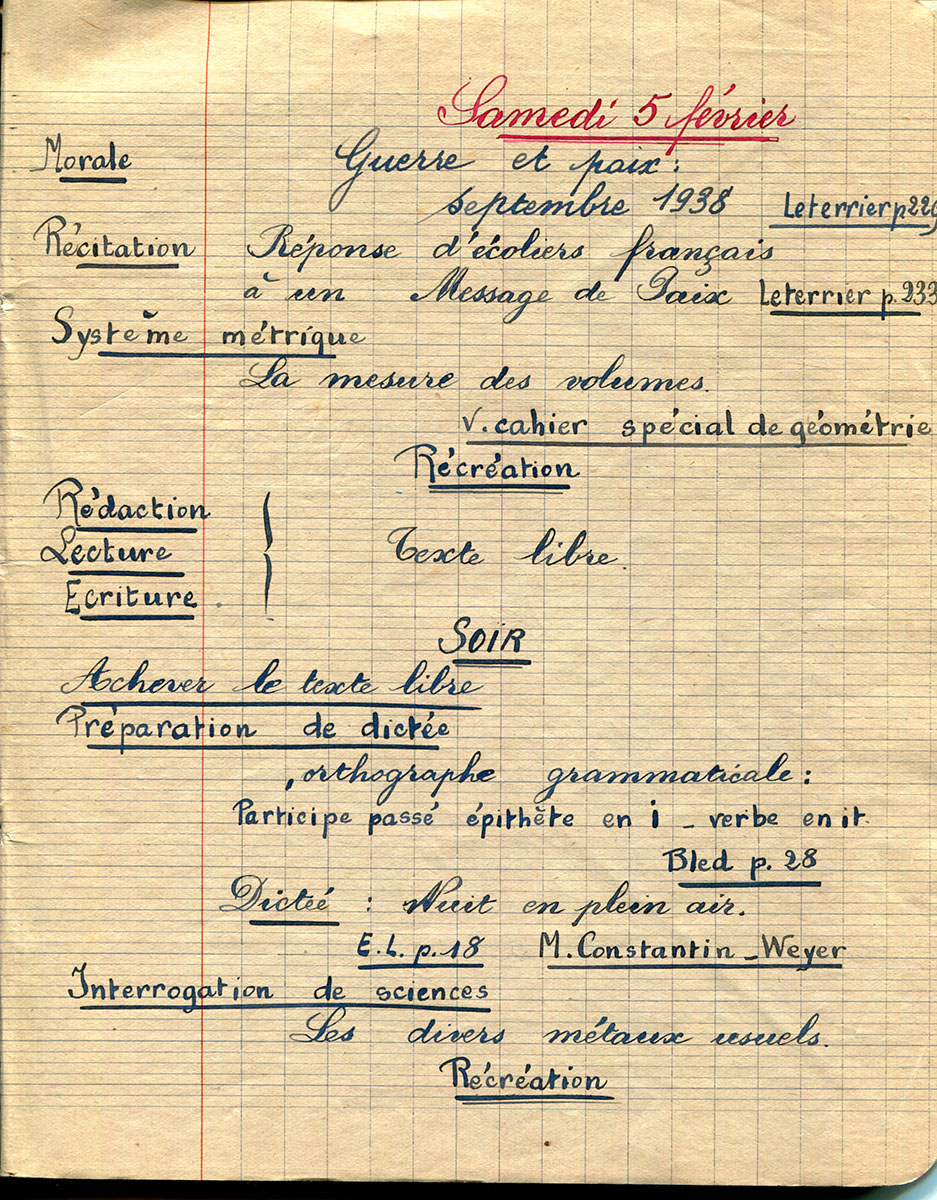 Samedi 5 février
Morale Guerre et paix :
septembre 1938 Leterrier p 229
Récitation Réponse d'écoliers français
à un Message de Paix Leterrier p. 233
Système métrique
La mesure des volumes.
V. cahier spécial de géométrie
Récréation
Rédaction
Lecture Texte libre.
Ecriture
SOIR
Achever le texte libre
Préparation de dictée
orthographe grammaticale :
Participe passé épithète en i _ verbe en it.
Bled p. 28
Dictée : Nuit en plein air.
E.L. p. 18 M. Constantin _ Weyer
Interrogation de sciences
Les divers métaux usuels.
Récréation